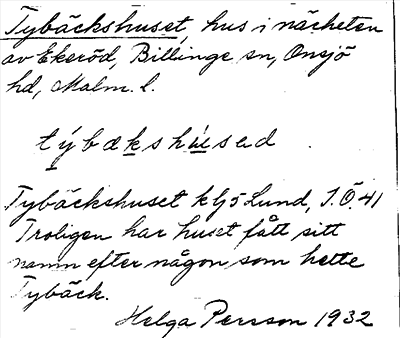 Tybäckshuset, hus i närheten
av Ekeröd, Billinge sn, Onsjö
hd, Malm. l.
týbækshùsəd
Tybäckshuset klj 5 Lund, I.Ö. 41
Troligen har huset fått sitt
namn efter någon som hette
Tybäck.
Helga Persson 1932